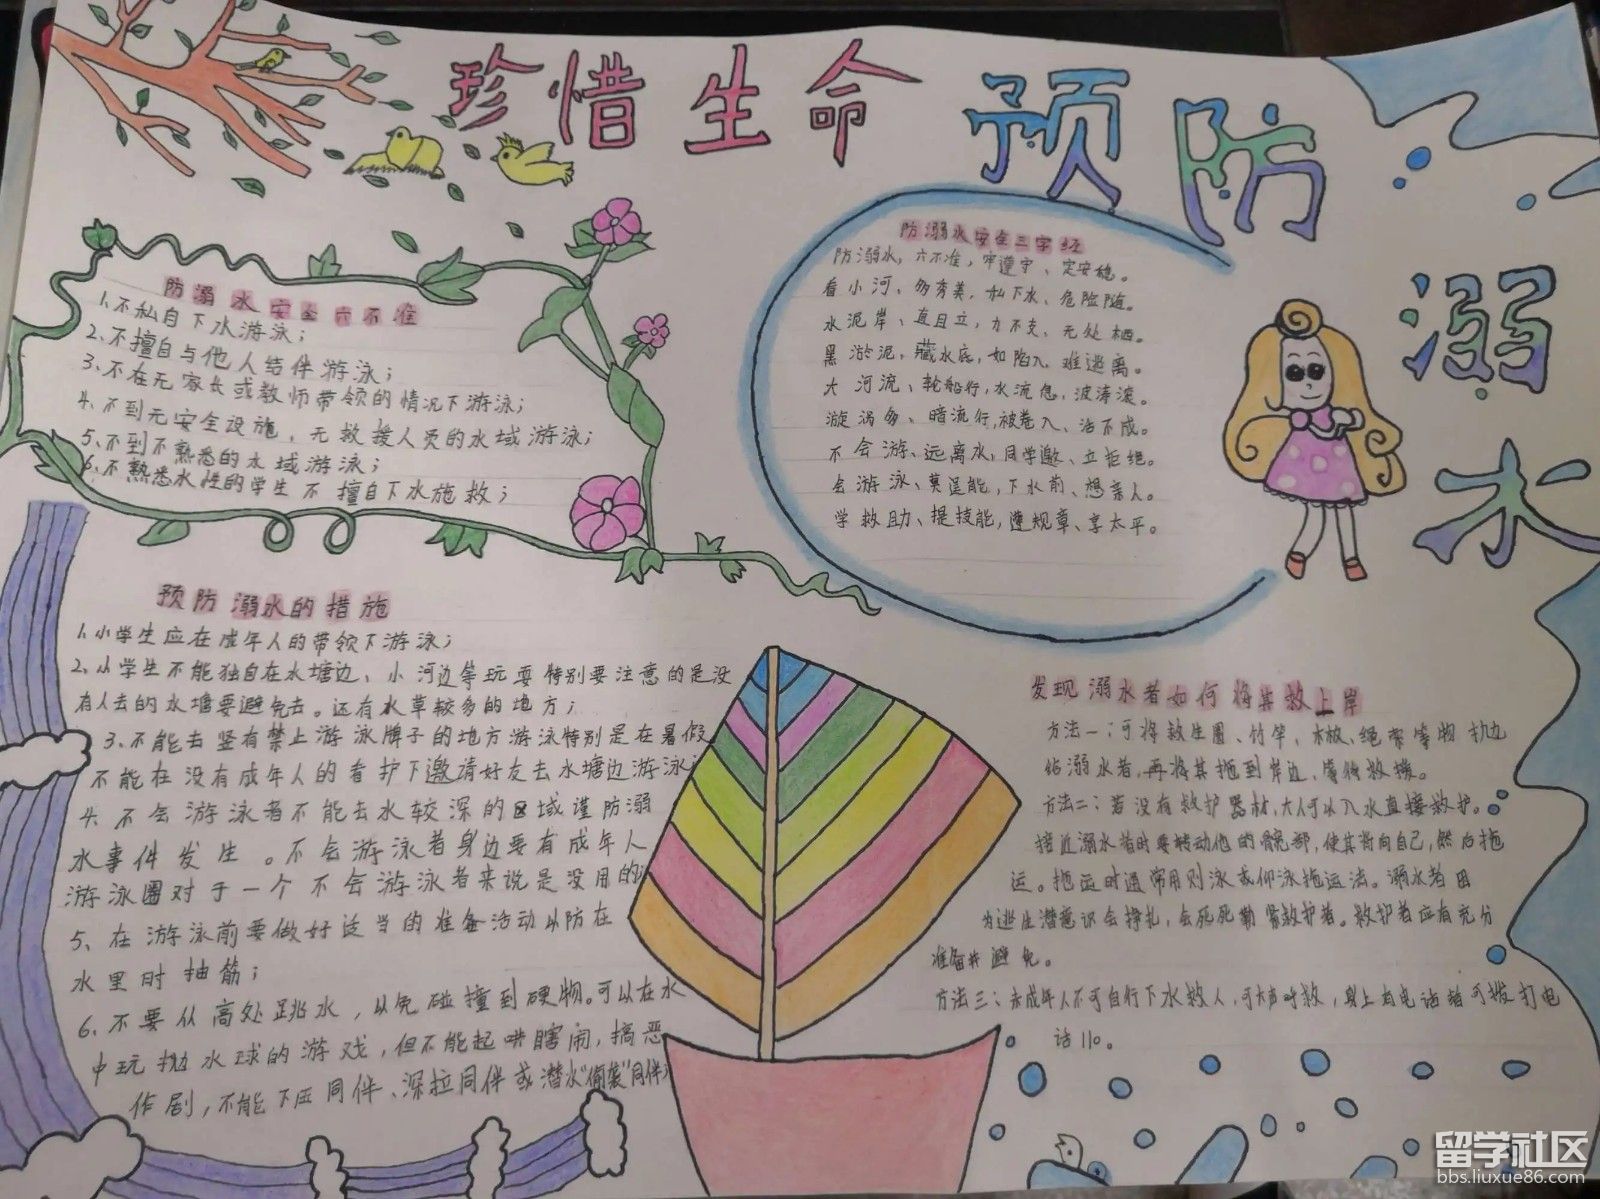 珍惜生命
预防
溺
水
防溺水安全六不准
1、不私自下水游泳；
2、不擅自与他人结伴游泳；
3、不在无家长或教师带领的情况下游泳；
4、不到无安全设施，无救援人员的水域游泳；
5、不到不熟悉的水域游泳；
6、不熟悉水性的学生不擅自下水施救；
防溺水安全三字经
防溺水，六不准，牢遵守、定安稳。
看小河、多秀美，私下水、危险随。
水泥岸、直且立，力不支、无处栖。
黑淤泥，藏水底，如陷入、难逃离。
大河流、轮船行，水流急，波涛滚。
漩涡多、暗流行，被卷入、活不成。
不会游、远离水，同学邀、立拒绝。
会游泳、莫逞能，下水前、想亲人。
学救助、提技能，遵规章、享太平。
预防溺水的措施
1、小学生应在成年人的带领下游泳；
2、小学生不能独自在水塘边、小河边等玩耍特别要注意的是没
有人去的水塘要避免去。还有水草较多的地方；
3、不能去竖有禁止游泳牌子的地方游泳特别是在暑假
不能在没有成年人的看护下邀请好友去水塘边游泳
4、不会游泳者不能去水较深的区域谨防溺
水事件发生。不会游泳者身边要有成年人
游泳圈对于一个不会游泳者来说是没用的
5、在游泳前要做好适当的准备活动以防在
水里时抽筋；
6、不要从高处跳水，以免碰撞到硬物。可以在水
中玩抛水球的游戏，但不能起哄瞎闹，搞恶
作剧，不能下压同伴、深拉同伴或潜水"偷袭"同伴
发现溺水者如何将其救上岸
方法一：可将救生圈、竹竿、木板、绳索等物抛
给溺水者，再将其拖到岸边、
方法二：若没有救护器材，大人可以入水直接救护。
接近溺水者时要转动他的髋部，使其背向自己，然后拖
运。拖运时通常用侧泳或仰泳拖运法。溺水者因
为逃生潜意识会挣扎，会死死勒紧救护者。救护者应有充分
准备并避免。
方法三：未成年人不可自行下水救人，可大声呼救，身上有电话者可拨打电
话110。
留学社区
bbs.liuxue86.com